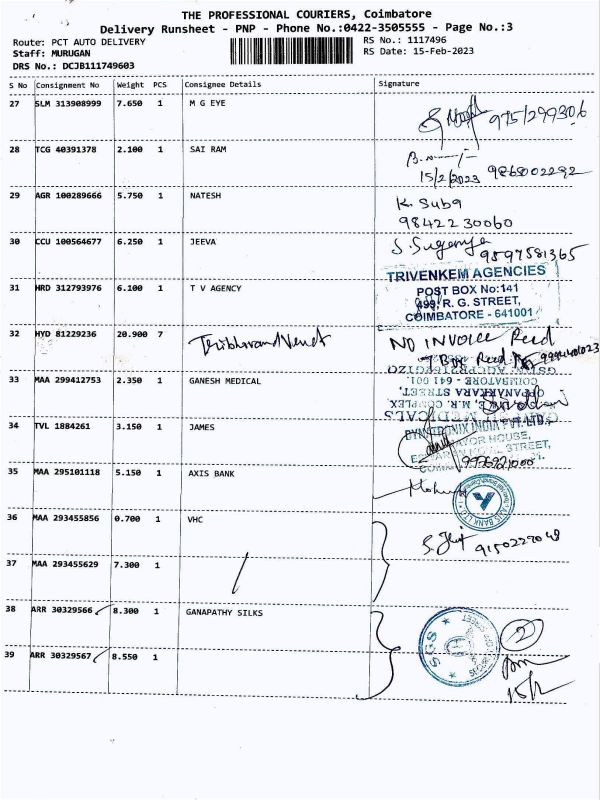 THE PROFESSIONAL COURIERS, Coimbatore
Delivery Runsheet - PNP - Phone No.:0422-3505555 - Page No.:3
Route: PCT AUTO DELIVERY
Staff: MURUGAN
DRS No.: DCJB111749603
RS No.: 1117496
RS Date: 15-Feb-2023
S No Consignment No Weight PCS Consignee Details Signature
27 SLM 313908999 7.650 1 M G EYE
28 TCG 40391378 2.100 1 SAI RAM
15/2/2023
29 AGR 100289666 5.750 1 NATESH K. Suba
98422 30060
30 CCU 100564677 6.250 1 JEEVA S. Suganya
9597581365
31 HRD 312793976 6.100 1 T V AGENCY TRIVENKEM AGENCIES
POST BOX No:141
499, R. G. STREET,
COIMBATORE - 641001
32 HYD 81229236 20.900 7 NO INVOICE Recd
7 Box Recd
33 MAA 299412753 2.350 1 GANESH MEDICAL
COIMBATORE - 641 001.
34 TVL 1884261 3.150 1 JAMES
35 MAA 295101118 5.150 1 AXIS BANK
AXIS BANK LTD
36 MAA 293455856 0.700 1 VHC
9150227048
37 MAA 293455629 7.300 1
38 ARR 30329566 8.300 1 GANAPATHY SILKS
SGS
2
39 ARR 30329567 8.550 1
15/2